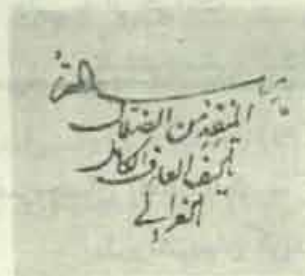 المنقذ من الضلال
تأليف العارف الكامل
الغزالي